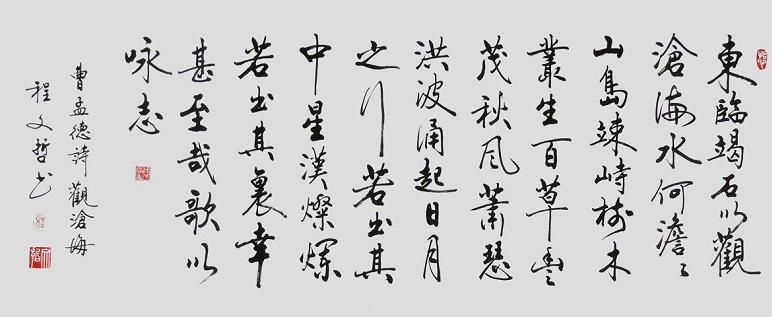 東臨竭石以觀
滄海水何澹〻
山島竦峙樹木
叢生百草豐
茂秋风蕭瑟
洪波涌起日月
之行若出其
中星漢燦爛
若出其裏幸
甚至哉歌以
咏志
曹孟德詩觀滄海
程文哲书